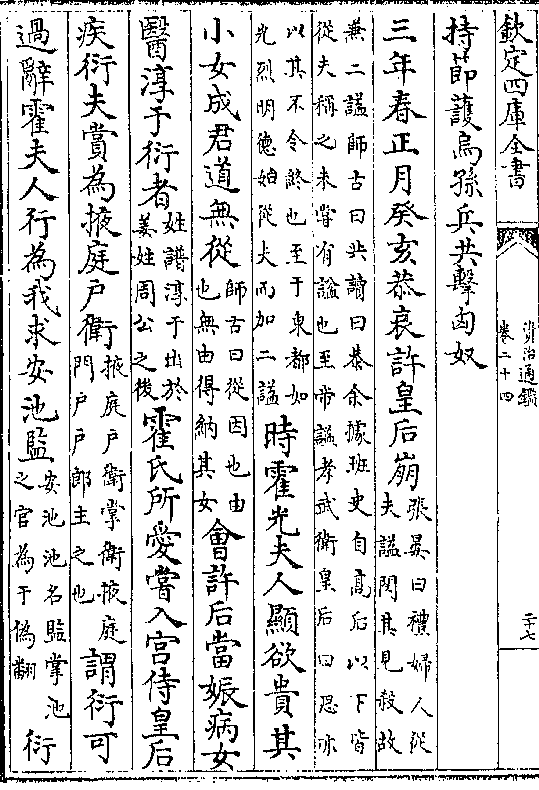 欽定四庫全書
資治通鑑
卷二十四
二十七
持節護烏孫兵共擊匈奴
三年春正月癸亥恭哀許皇后崩
張晏曰禮婦人從
夫謚閔其見殺故
兼二謚師古曰共讀曰恭余據班史自高后以下皆
從夫稱之未嘗有謚也至帝謚孝武衛皇后曰思亦
以其不令終也至于東都如
光烈明德始從夫而加二謚
時霍光夫人顯欲貴其
小女成君道無從
師古曰從因也由
也無由得納其女
會許后當娠病女
醫淳于衍者
姓譜淳于出於
姜姓周公之後
霍氏所愛嘗入宮侍皇后
疾衍夫賞為掖庭户衛
掖庭户衛掌衛掖庭
門户户郎主之也
謂衍可
過辭霍夫人行為我求安池監
安池池名監掌池
之官為于偽翻
衍